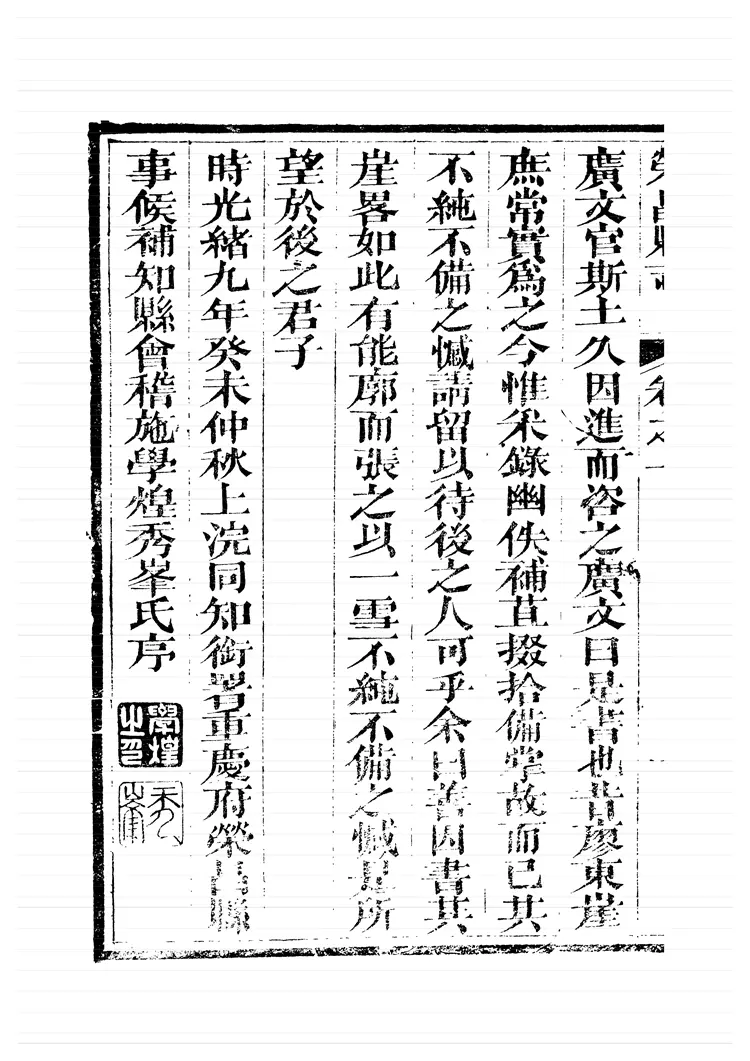 榮昌縣志 卷之一
廣文官斯土久因進而咨之廣文曰是書也昔廖東崖
庶常實爲之今惟采錄幽佚補苴掇拾備掌故而已其
不純不備之憾請留以待後之人可乎余曰善因書其
崖畧如此有能廓而張之以一雪不純不備之憾是所
望於後之君子
時光緒九年癸未仲秋上浣同知銜署重慶府榮昌縣
事候補知縣會稽施學煌秀峯氏序
學煌之印
秀峯